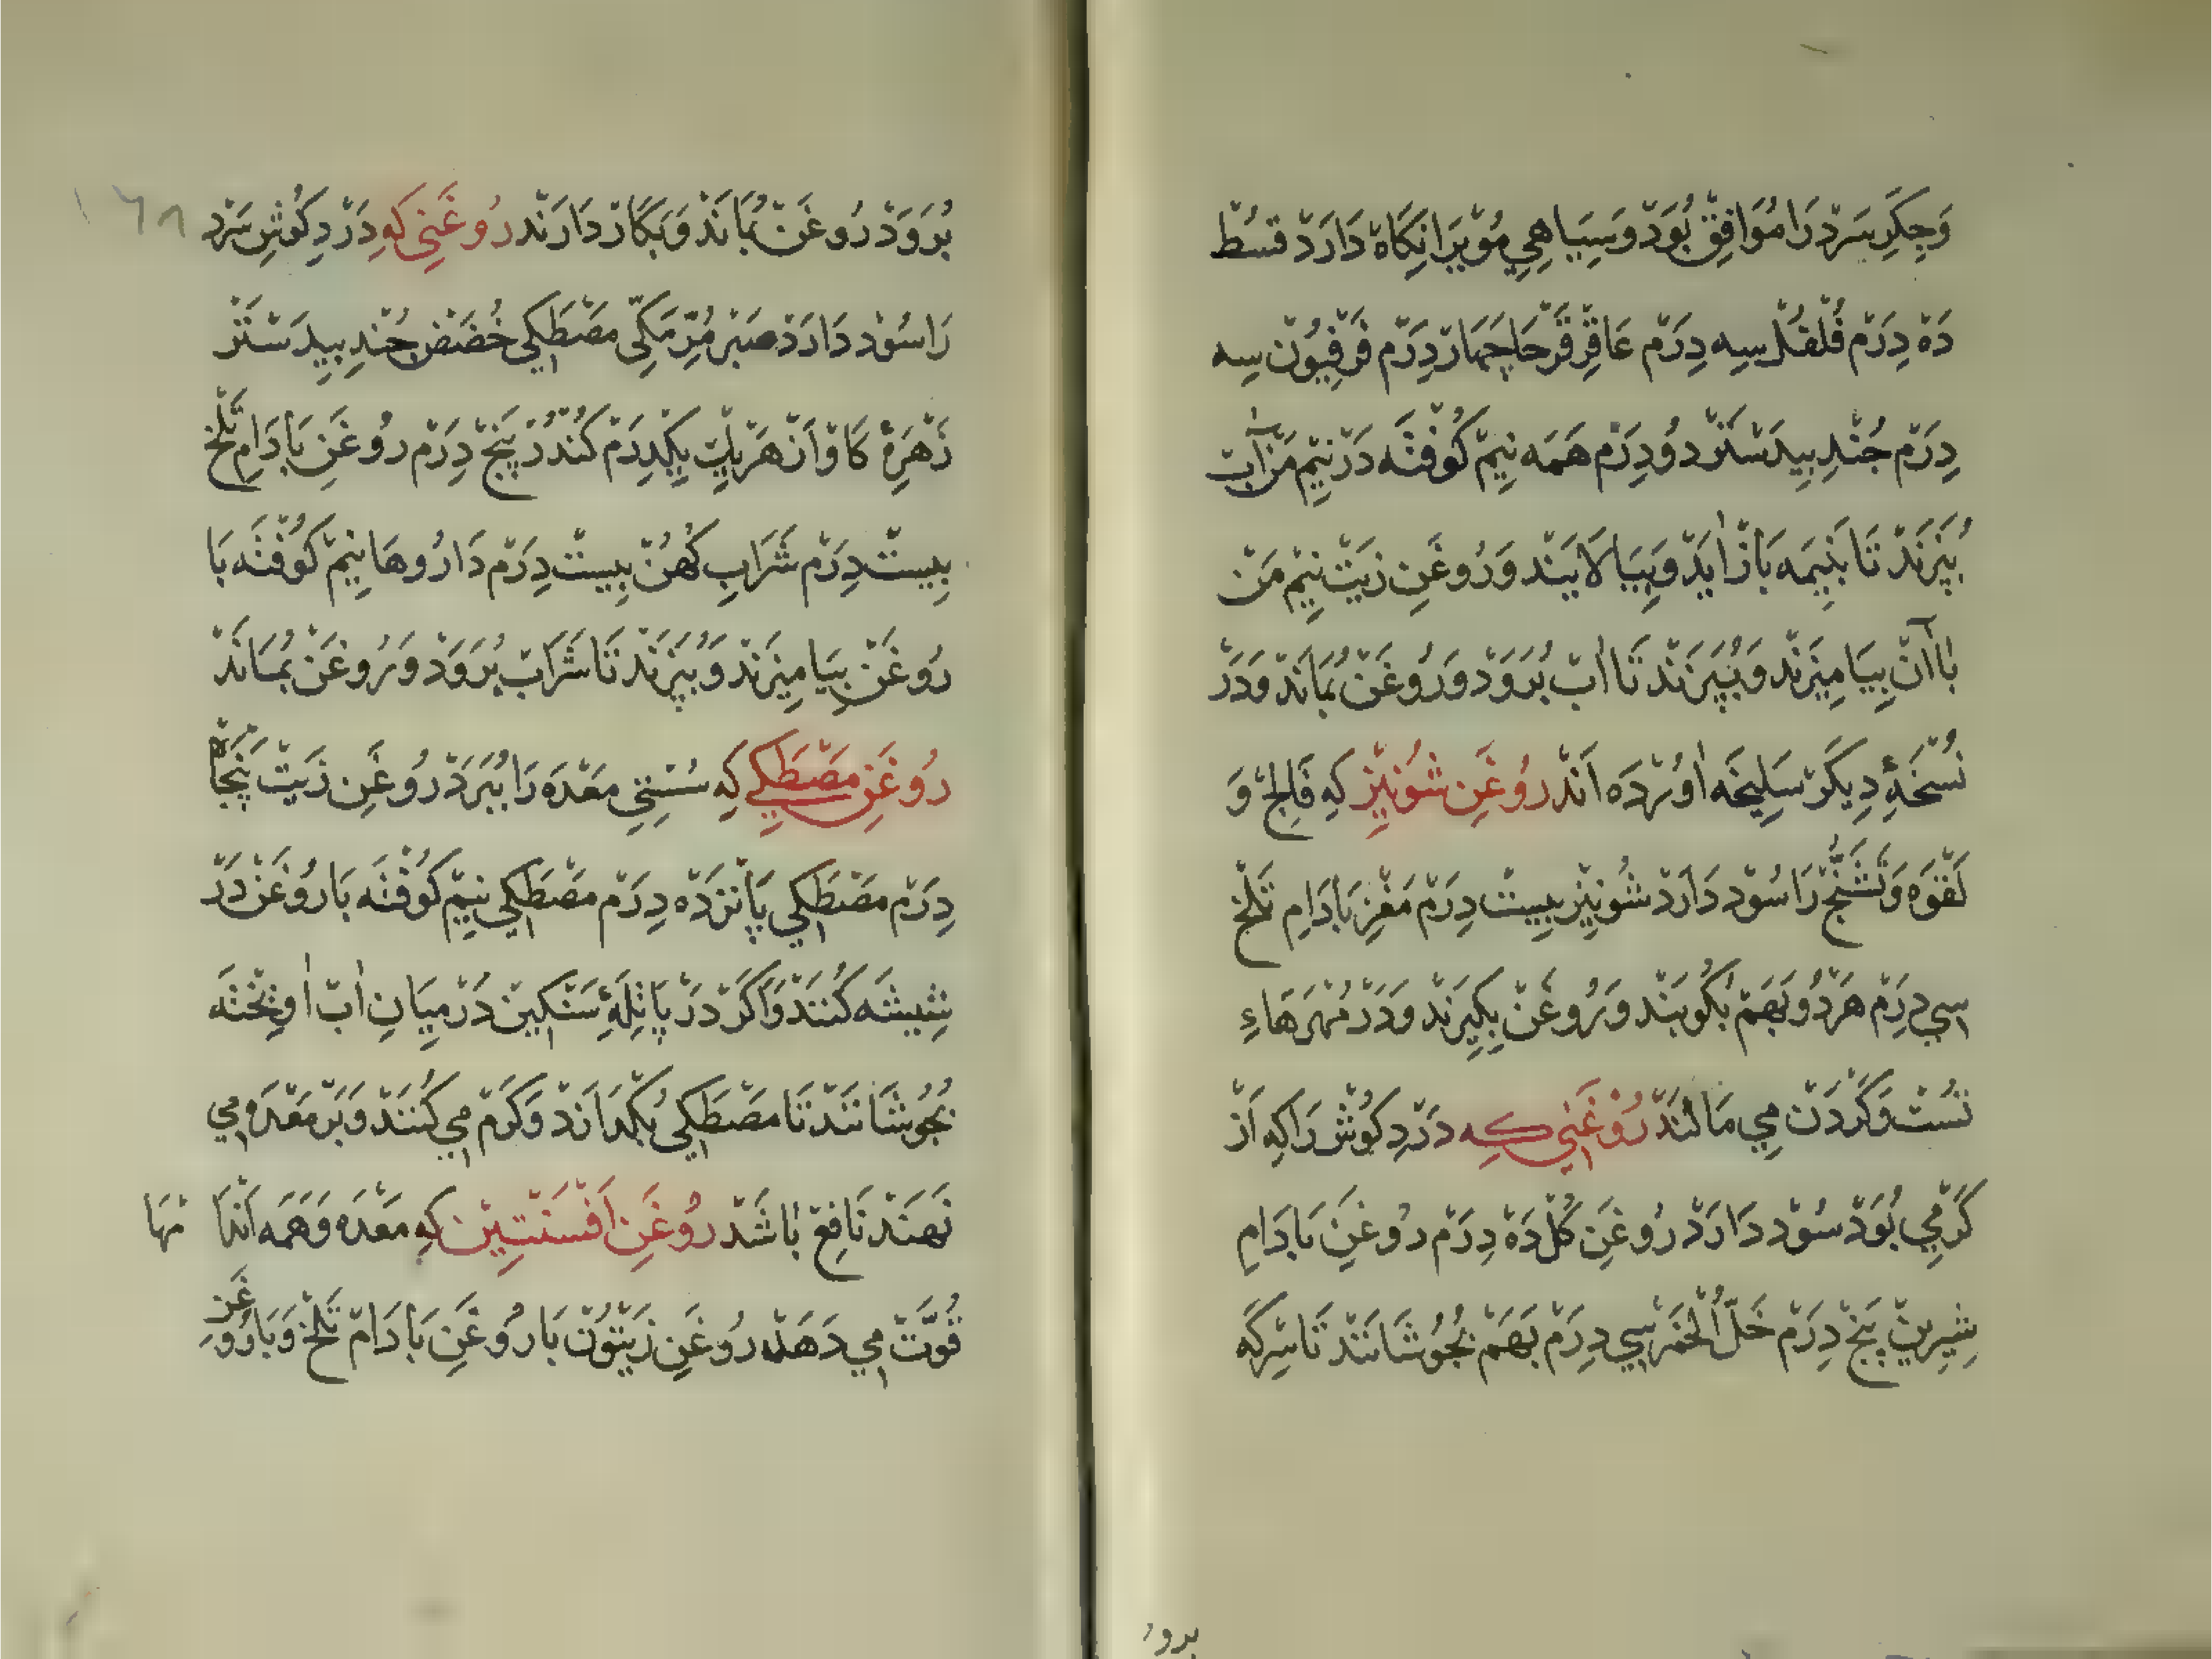 وَجِكَرِ سَرْد رَا مُوَافِقْ بُوَدْ وَسِيَاهِيِ مُوْيرَا نِكَاهْ دَارَدْ قسُطْ
دَهْ دِرَمْ فُلفُلْ سِه دِرَمْ عَاقِرْقَرْحَا چَهَارْ دِرَمْ فَرْفِيُوْن سِه
دِرَمْ جُنْدِ بِيدَسْتَرْ دُو دِرَمْ هَمَه نِيمْ كُوفْتَه دَرْ نِيمْ مَنْ اٰبْ
بُپَزَنْدْ تَا بَنِيمَه بَازْ اٰيَدْ وَبِپَالَايَنْد وَرُوغَنِ زيَتْ نِيمْ مَنْ
بَا اٰنْ بِيَامِيزَنْد وَبُپَزَنْدْ تَا اٰبْ بُرَوَدْ وَرُوغَنْ بُمَانَدْ وَدَرْ
نُسْخَهٔ دِيكَرْ سَلِيخَه اٰوُرْدَه اَنْدْ رُوغَنِ شُونِيْز كِه فَالِجْ وَ
لَقْوَه وَتَشَنُّجْ رَا سُوْد دَارَدْ شُونِيْز بِيسْتْ دِرَمْ مَغْزِ بَادَامِ تَلْخْ
سِي دِرَمْ هَرْدُو بَهَمْ بُكُوبَنْد وَرُوغَنْ بِكِيرَنْدْ وَدَرْ مُهْرَهَاءِ
نسُتْ وَكَرْدَنْ مِي مَالَنْدْ رُوْغَنِي كِه دَرْدِ كُوْشْ رَا كِه اَزْ
كَرْمِي بُوَدْ سُوْد دَارَدْ رُوغَنِ كُلْ دَهْ دِرَمْ رُوغَنِ بَادَامِ
شِيرِينْ پَنْج دِرَمْ خَلُّ الْخَمْر سِي دِرَمْ بَهَمْ بُجُوشَانَنْد تَا سِرْكَه
برود
١٦٨
بُرَوَدْ رُوغَنْ بُمَانَدْ وَبَكَارْ دَارَنْد رُوغَنِي كِه دَرْدِ كُوْشِ سَرْد
رَا سُوْد دَارَدْ صَبْر مُرِّ مَكِّي مَصْطَكِي حُضَضْ جُنْدِ بِيدَسْتَرْ
زَهْرَهٔ كَاوْ اَزْ هَرْ يِكْ يِكْدِرَمْ كُنْدُرْ پَنْجْ دِرَمْ رُوغَنِ بَادَامِ تَلْخْ
بِيسْتْ دِرَمْ شَرَابِ كُهُنْ بِيسْتْ دِرَمْ دَارُوهَا نِيمْ كُوفْتَه بَا
رُوغَنْ بِيَامِيزَنْد وَبُپَزَنْد تَا شَرَابْ بُرَوَدْ وَرُوغَنْ بُمَانَدْ
رُوغَنِ مَصْطَكِي كِه سُسْتِيِ مَعْدَه رَا بُبَرَدْ رُوغَنِ زَيَتْ پَنْجَاهْ
دِرَمْ مَصْطَكِي پَانْزَدَه دِرَمْ مَصْطَكِي نِيمْ كُوفْتَه بَا رُوغَنْ دَرْ
شِيشَه كُنَنْدْ وَاكَرْ دَرْ پَاتِلَهٔ سَنْكِينْ دَرْ مِيَانِ اٰبْ اٰوِيخْتَه
بُجُوشَانَنْدْ تَا مَصْطَكِي بُكْدَازَدْ وَكَرْمْ مِي كُنَنْد وَبَرْ مَعْدَه مِي
نَهَنْد نَافِعْ بَاشَدْ رُوغَنِ اَفْسَنْتِيْن كِه مَعْدَه وَهَمَه اَنْدَا مْهَا
قُوَّتْ مِي دَهَدْ رُوغَنِ زَيْتُونْ يَا رُوغَنِ بَادَامْ تَلْخْ وَيَا رُوغَنِ